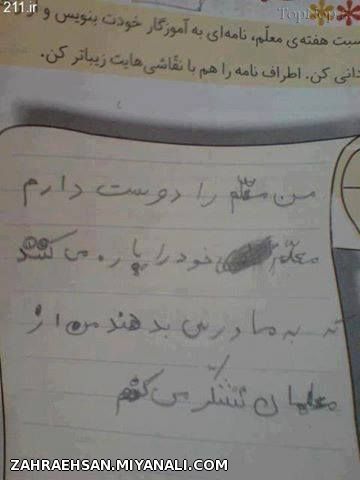 211.ir
TopTop
سبت هفته‌ی معلّم، نامه‌ای به آموزگار خودت بنویس و
دانی کن. اطراف نامه را هم با نقّاشی‌هایت زیباتر کن.
من معلّم را دوست دارم
معلّم خود را پاره می کنند
تا به ما درس بدهند من از
معلمان تشکّر می کنم
ZAHRAEHSAN.MIYANALI.COM